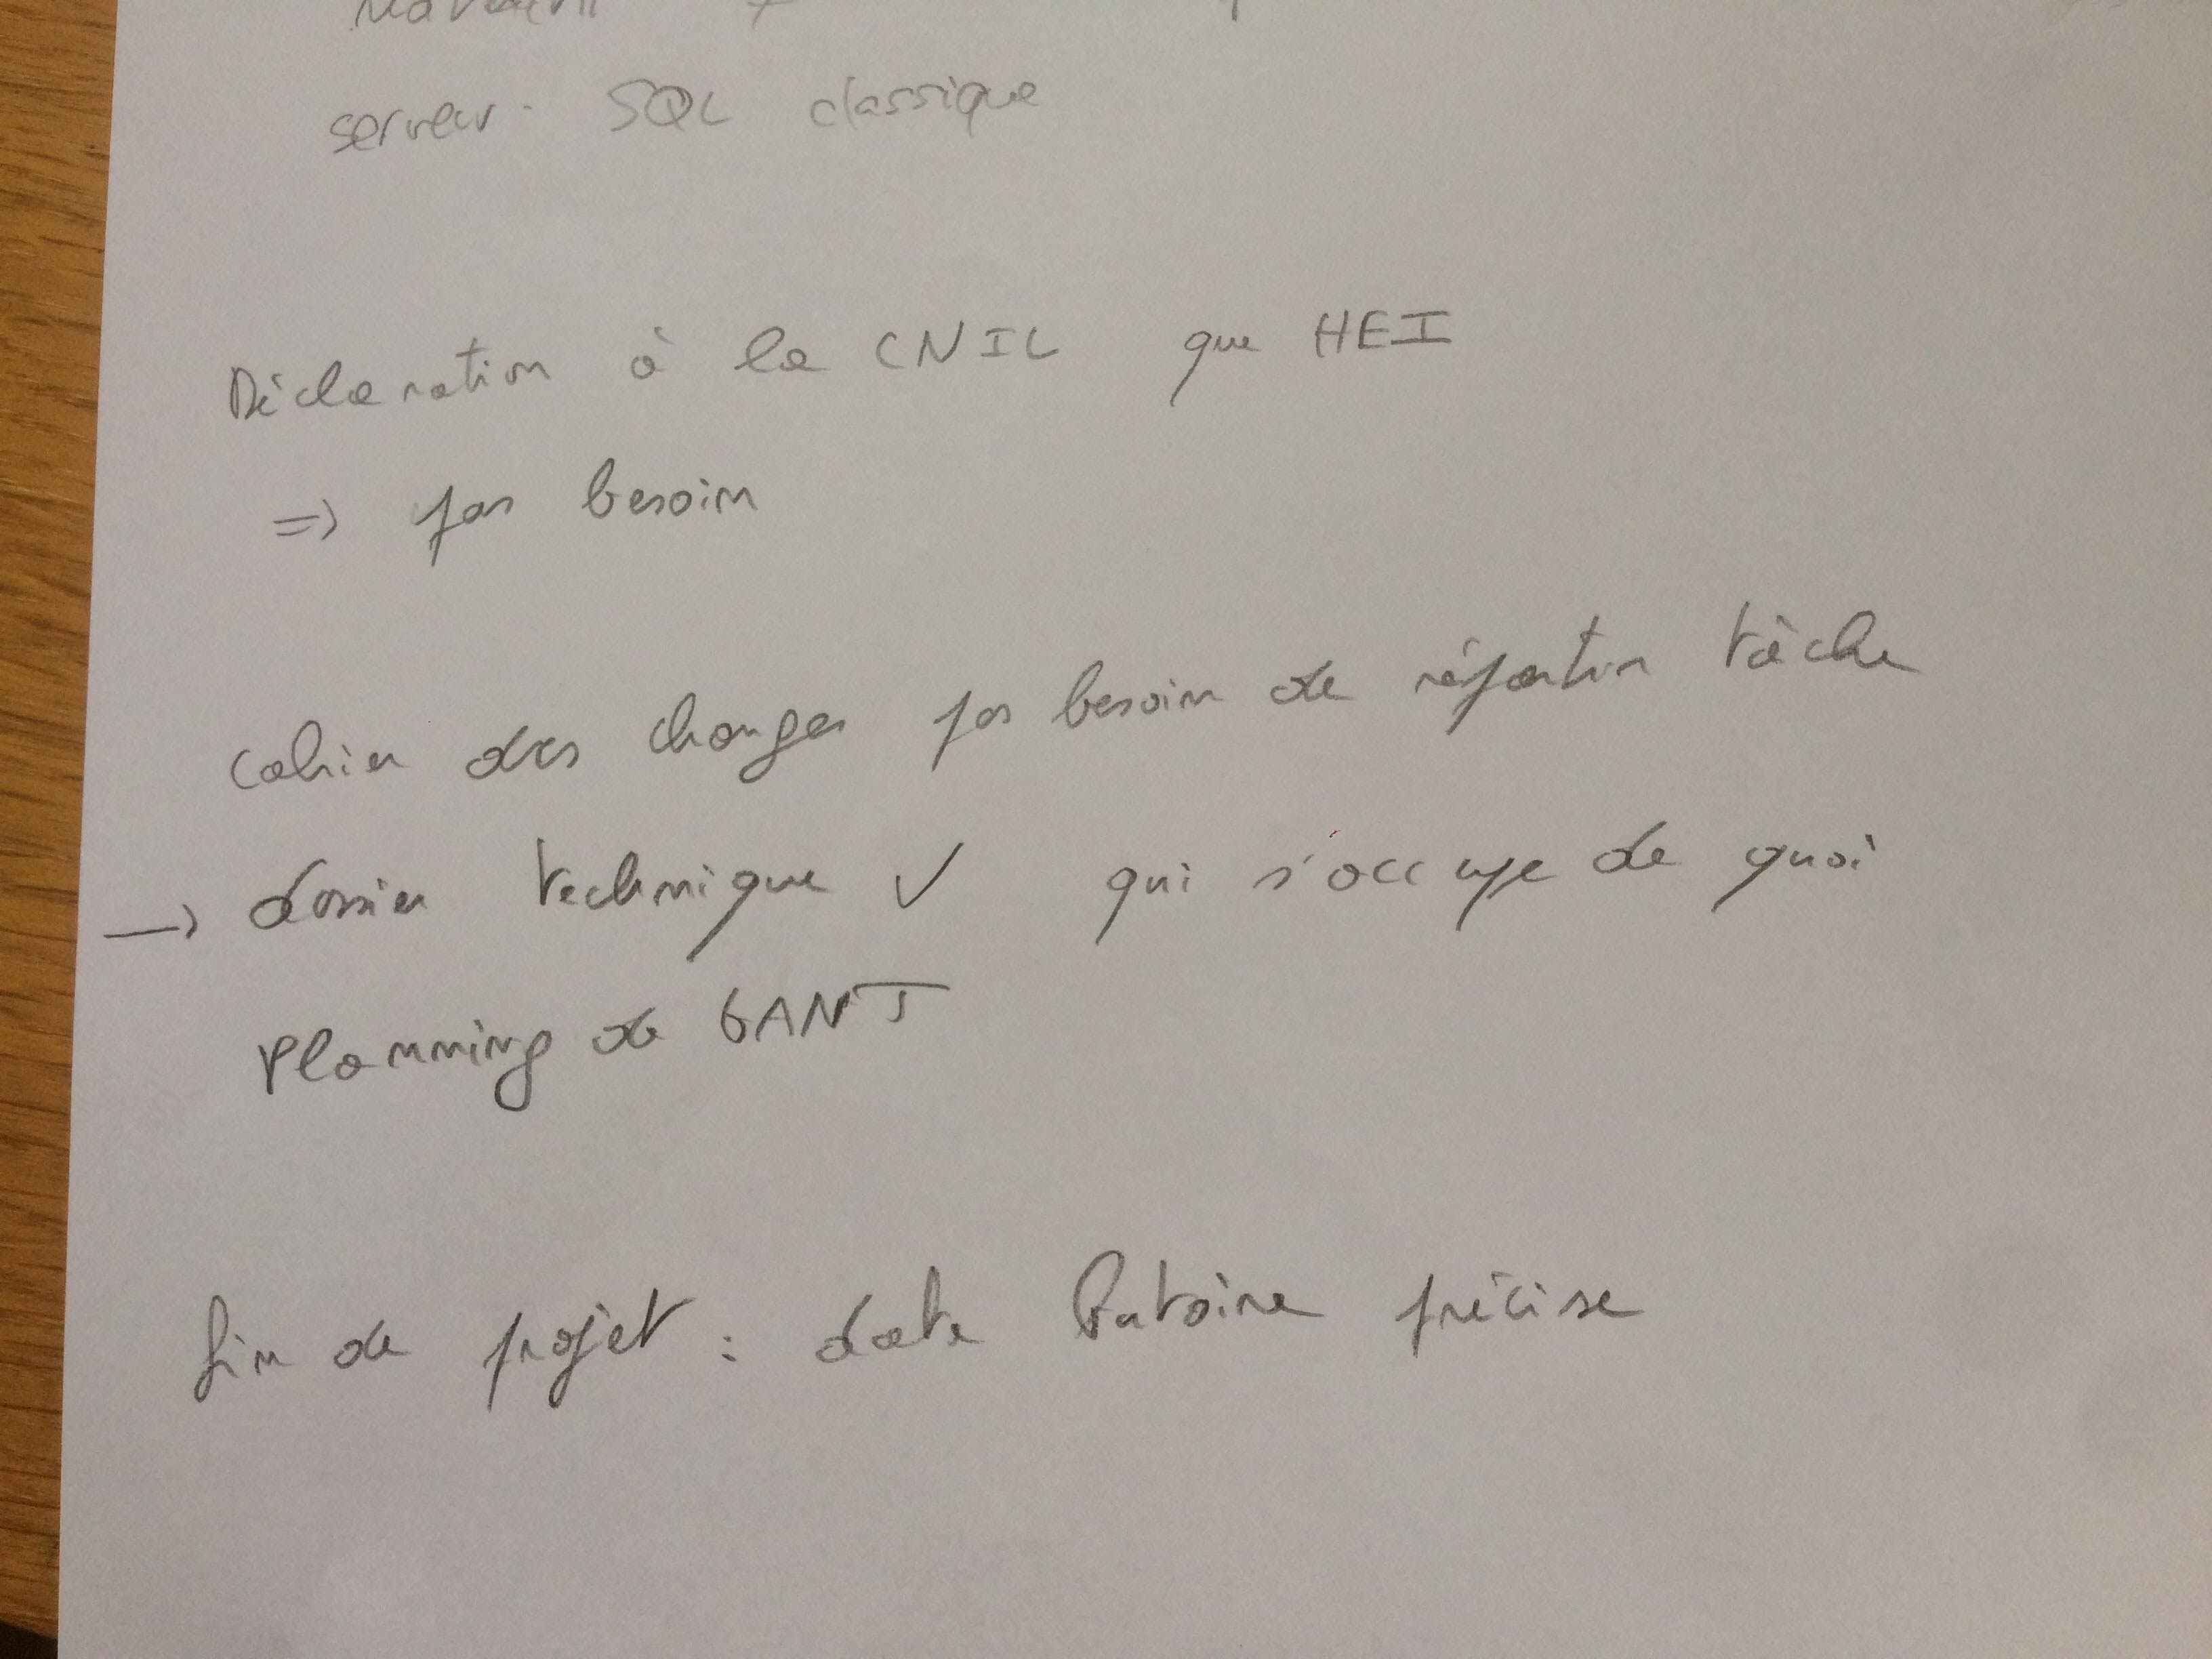 serveur. SQL classique
Déclaration à la CNIL que HEI
=> pas besoin
Cahier des charges pas besoin de répartition tâche
-> dossier technique ✓ qui s'occupe de quoi
Planning de GANT
fin de projet : date précise